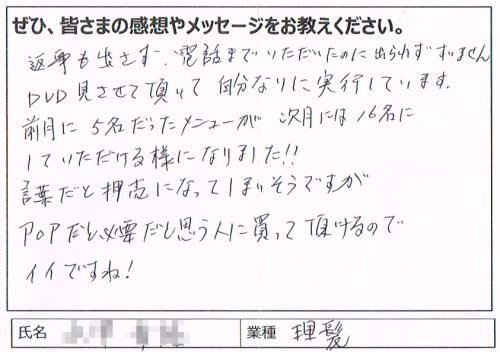 ぜひ、皆さまの感想やメッセージをお教えください。
返事も出さず、電話までいただいたのに出られずすいません
DVD見させて頂いて 自分なりに実行しています。
前月に5名だったメニューが 次月には16名に
していただける様になりました!!
言葉だと押売になってしまいそうですが
POPだと必要だと思う人に買って頂けるので
イイですね!
氏名 業種 理髪